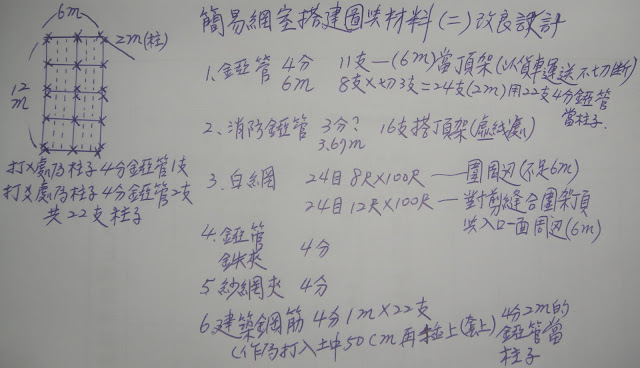 簡易網室搭建圖與材料(二)改良設計
6m
2m(柱)
12
m
打X處為柱子4分錏管1支
打X處為柱子4分錏管2支
共22支柱子
1.錏管 4分 11支—(6m)當頂架(以貨車運送不切斷)
6m 8支×切3支=24支(2m)用22支4分錏管
當柱子.
2、消防錏管 3分? 16支搭頂架(虛線處)
3.69m
3.白網 24目8尺X100尺——圍周边(不足6m)
24目12尺X100尺—對剪縫合圍架頂
與入口一面周边(6m)
4.錏管
鉄夾 4分
5.紗網夾 4分
6.建築鋼筋 4分1m×22支
(作為打入土中50cm再插上(套上) 4分2m的
錏管當
柱子